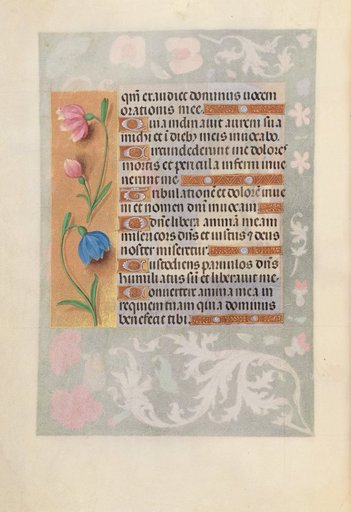 qm̄ exaudiet dominus uocem
orationis mee.
Quia inclinauit aurem suā
michi et ī dieb⁹ meis inuocabo.
Circundederunt me dolores
mortis et pericula inferni inue
nerunt me
Tribulationē et dolorē inue
ni et nomen dn̄i inuocaui
O dn̄e libera animā meam
misericors dn̄s et iustus ⁊ deus
noster miseretur.
Custodiens paruulos dn̄s
humiliatus sū et liberauit me.
Conuertere anima mea in
requiem tuam quia dominus
benefecit tibi.